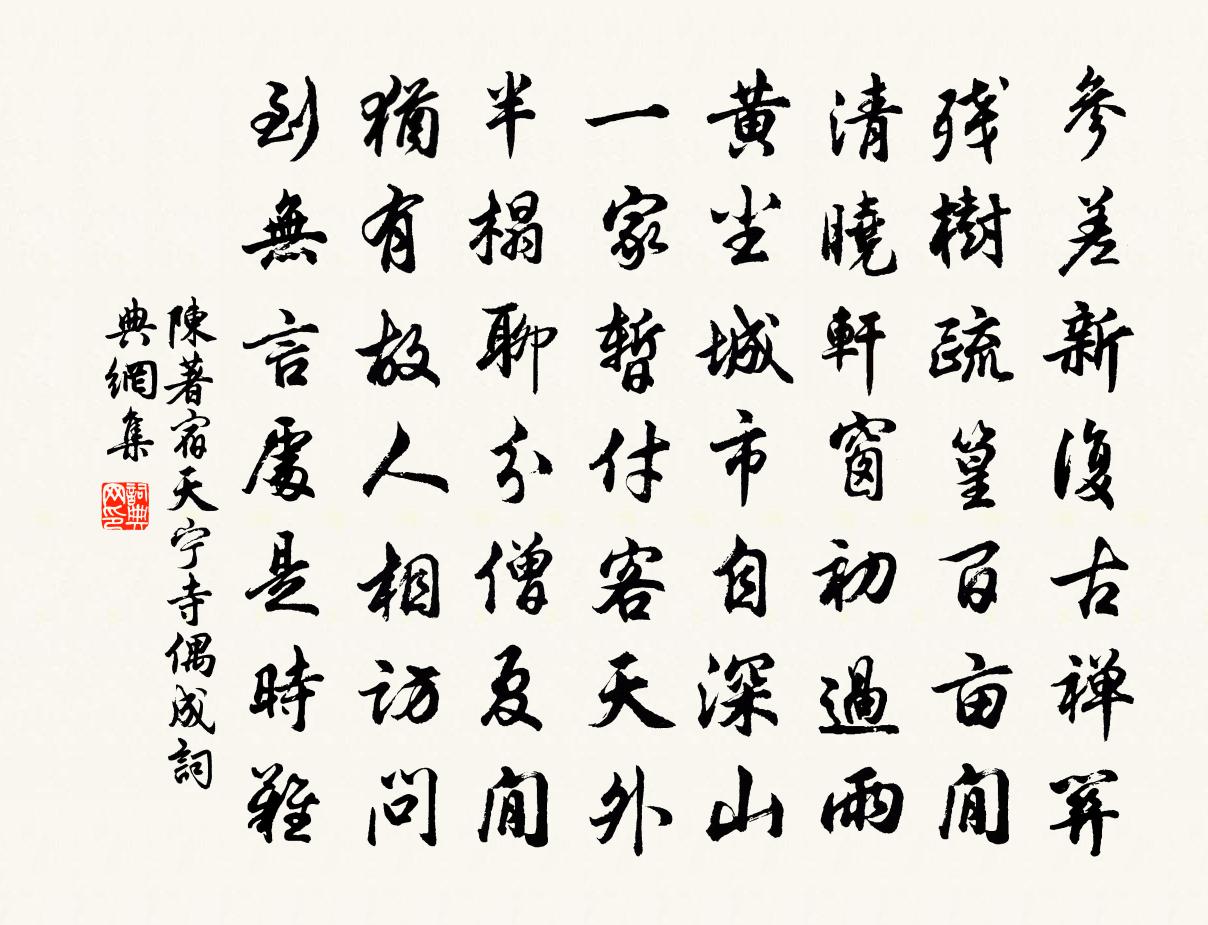 參差新復古禅關
残樹疏篁百亩間
清曉軒窗初過雨
黄尘城市自深山
一家暫付客天外
半榻聊分僧夏間
猶有故人相訪問
到無言處是時難
陳著宿天宁寺偶成詞
典網集
詞典网印